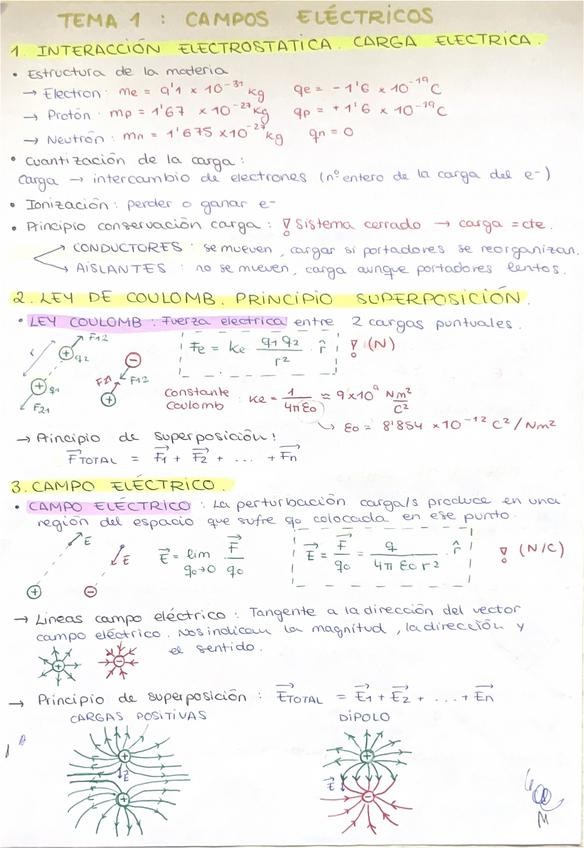 TEMA 1 : CAMPOS ELÉCTRICOS
1. INTERACCIÓN ELECTROSTATICA. CARGA ELECTRICA.
• Estructura de la materia
→ Electron: me = 9'1 x 10⁻³¹ kg qe = -1'6 x 10⁻¹⁹ C
→ Protón: mp = 1'67 x 10⁻²⁷ kg qp = +1'6 x 10⁻¹⁹ C
→ Neutrón: mn = 1'675 x 10⁻²⁷ kg qn = 0
• Cuantización de la carga:
Carga → intercambio de electrones (nº entero de la carga del e-)
• Ionización: perder o ganar e-
• Principio conservación carga: ! Sistema cerrado → carga = cte.
→ CONDUCTORES: se mueven, cargar si portadores se reorganizan.
→ AISLANTES: no se mueven, carga aunque portadores lentos.
2. LEY DE COULOMB. PRINCIPIO SUPERPOSICIÓN.
• LEY COULOMB: Fuerza electrica entre 2 cargas puntuales.
Fe = Ke q1 q2 / r² · r̂ ! (N)
F12 q2 q1 F21
F21 F12
Constante Coulomb Ke = 1 / 4πεo ≈ 9x10⁹ Nm²/C²
↳ εo = 8'854 x10⁻¹² C²/Nm²
→ Principio de superposición:
F⃗TOTAL = F⃗1 + F⃗2 + ... + F⃗n
3. CAMPO ELÉCTRICO.
• CAMPO ELÉCTRICO: La perturbación carga/s produce en una
región del espacio que sufre qo colocada en ese punto.
E⃗ E⃗
E⃗ = lim qo→0 F⃗ / qo
E⃗ = F⃗ / qo = q / 4π εo r² · r̂ ! (N/C)
→ Líneas campo eléctrico: Tangente a la dirección del vector
campo eléctrico. Nos indican la magnitud, la dirección y
el sentido.
→ Principio de superposición: E⃗TOTAL = E⃗1 + E⃗2 + ... + E⃗n
CARGAS POSITIVAS DIPOLO
E⃗ E⃗